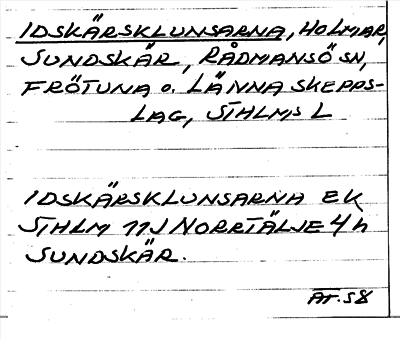 IDSKÄRSKLUNSARNA, HOLMAR,
SUNDSKÄR, RÅDMANSÖ SN,
FRÖTUNA o. LÄNNA SKEPPS-
LAG, STHLMS L
IDSKÄRSKLUNSARNA EK
STHLM 11J NORRTÄLJE 4h
SUNDSKÄR.
ÄT.58